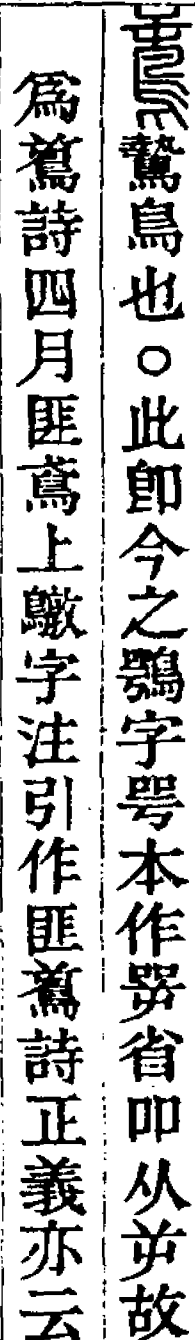 鷙鳥也○此卽今之鶚字咢本作㖾省吅从屰故
爲詩四月匪鳶上字注引作匪詩正義亦云